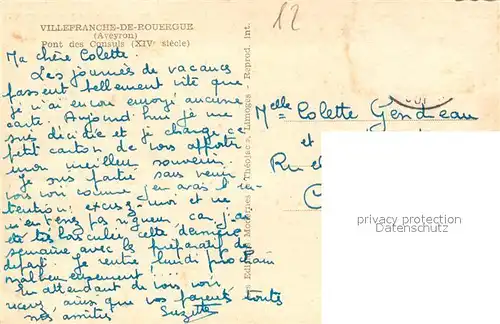 VILLEFRANCHE-DE-ROUERGUE
(Aveyron)
Pont des Consuls (XIVe siècle)
12
Ma chère Colette.
Les journées de vacances
passent tellement vite que
je n'ai encore envoyé aucune
carte. Aujourd'hui je me
suis décidée et je charge ce
petit carton de vous apporter
mon meilleur souvenir.
Je suis partie sans venir
vous voir comme j'en avais l'in-
tention, excusez-moi et ne
m'en tenez pas rigueur, car j'ai
été très bousculée cette dernière
semaine avec le préparatif de
départ. Je rentre lundi prochain
malheureusement!...
En attendant de vous voir,
recevez ainsi que vos parents toutes
nos amitiés Suzette
Modernes Théojac, Limoges - Reprod. Int.
Melle Colette Gendreau
et
privacy protection
Datenschutz